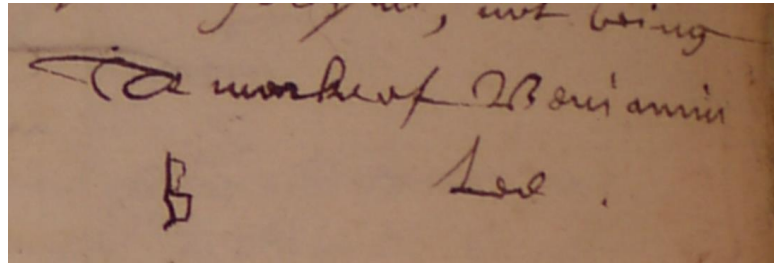 not being
The marke of Beniamin
B Lee .